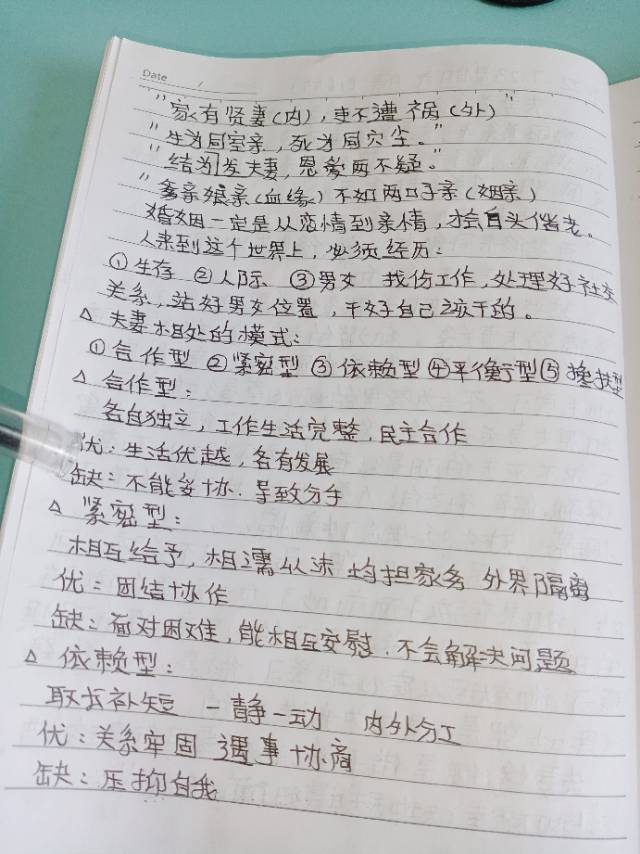 Date
"家有贤妻(内),夫不遭祸(外)"
"生为同室亲,死为同穴尘。"
"结为发夫妻,恩爱两不疑。"
"爹亲娘亲(血缘)不如两口子亲(姻亲)
婚姻一定是从恋情到亲情,才会白头偕老。
人来到这个世界上,必须经历:
①生存 ②人际 ③男女 找份工作,处理好社交
关系,站好男女位置,干好自己该干的。
△ 夫妻相处的模式:
①合作型 ②紧密型 ③依赖型 ④平衡型 ⑤搀扶型
△ 合作型:
各自独立,工作生活完整,民主合作
优:生活优越,各有发展
缺:不能妥协.导致分手
△ 紧密型:
相互给予,相濡以沫 均担家务 外界隔离
优:团结协作
缺:面对困难,能相互安慰.不会解决问题
△ 依赖型:
取长补短 一静一动 内外分工
优:关系牢固 遇事协商
缺:压抑自我